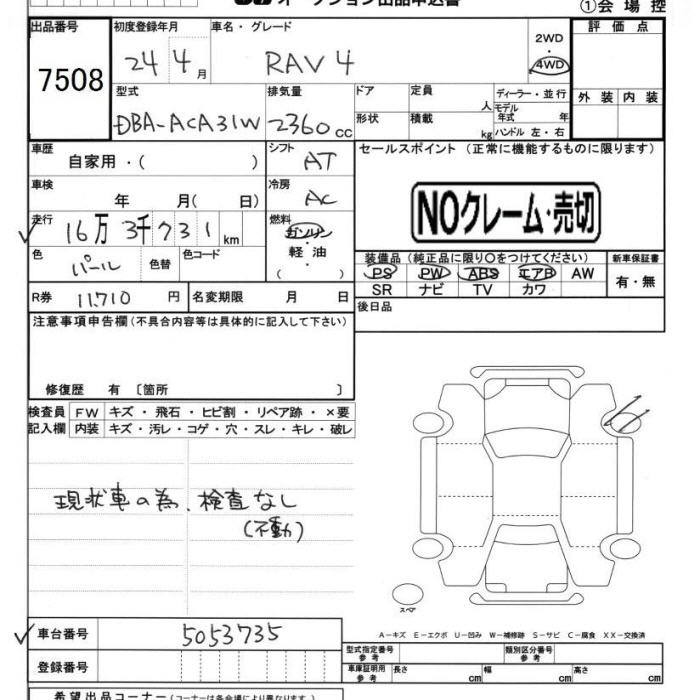 オークション出品申込書 ①会場控
出品番号 初度登録年月 車名・グレード 評価点
7508 24 4月 RAV4 2WD・4WD
型式 排気量 ドア 定員 人 ディーラー・並行 外装 内装
DBA-ACA31W 2360cc 形状 積載 kg モデル年式 年 ハンドル 左・右
車歴 自家用・( ) シフト AT セールスポイント (正常に機能するものに限ります)
車検 年 月( 日) 冷房 AC NOクレーム・売切
走行 16万3千731km 燃料 ガソリン・軽油・( )
色 パール 色替 色コード
装備品(純正品に限り○をつけてください) 新車保証書
PS PW ABS エアB AW 有・無
SR ナビ TV カワ
R券 11710円 名変期限 月 日 後日品
注意事項申告欄(不具合内容等は具体的に記入して下さい)
修復歴 有 〔箇所 〕
検査員 FW キズ・飛石・ヒビ割・リペア跡・×要
記入欄 内装 キズ・汚レ・コゲ・穴・スレ・キレ・破レ
現状車の為、検査なし
(不動)
スペア
A-キズ E-エクボ U-凹み W-補修跡 S-サビ C-腐食 XX-交換済
車台番号 5053735 型式指定番号 参考 類別区分番号 参考
登録番号 車庫証明用 参考 長さ cm 幅 cm 高さ cm
希望出品コーナー(コーナーは各会場により異なります。)